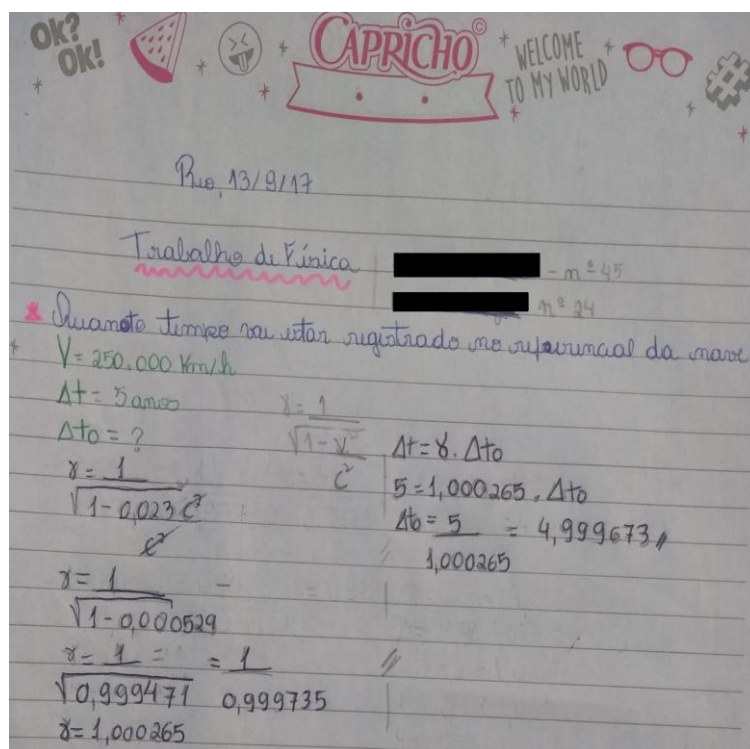 Ok?
Ok!
CAPRICHO©
WELCOME
TO MY WORLD
#
Rio, 13/9/17
Trabalho de Física
- nº 45
nº 24
Quanto tempo vai estar registrado no referencial da nave
V = 250.000 Km/h
Δt = 5 anos
Δto = ?
γ = 1
√1 - 0,023 c²
c²
γ = 1
√1 - 0,000529
γ = 1 = = 1
√0,999471 0,999735
γ = 1,000265
γ = 1
√1 - v²
c²
Δt = γ . Δto
5 = 1,000265 . Δto
Δto = 5 = 4,999673 //
1,000265